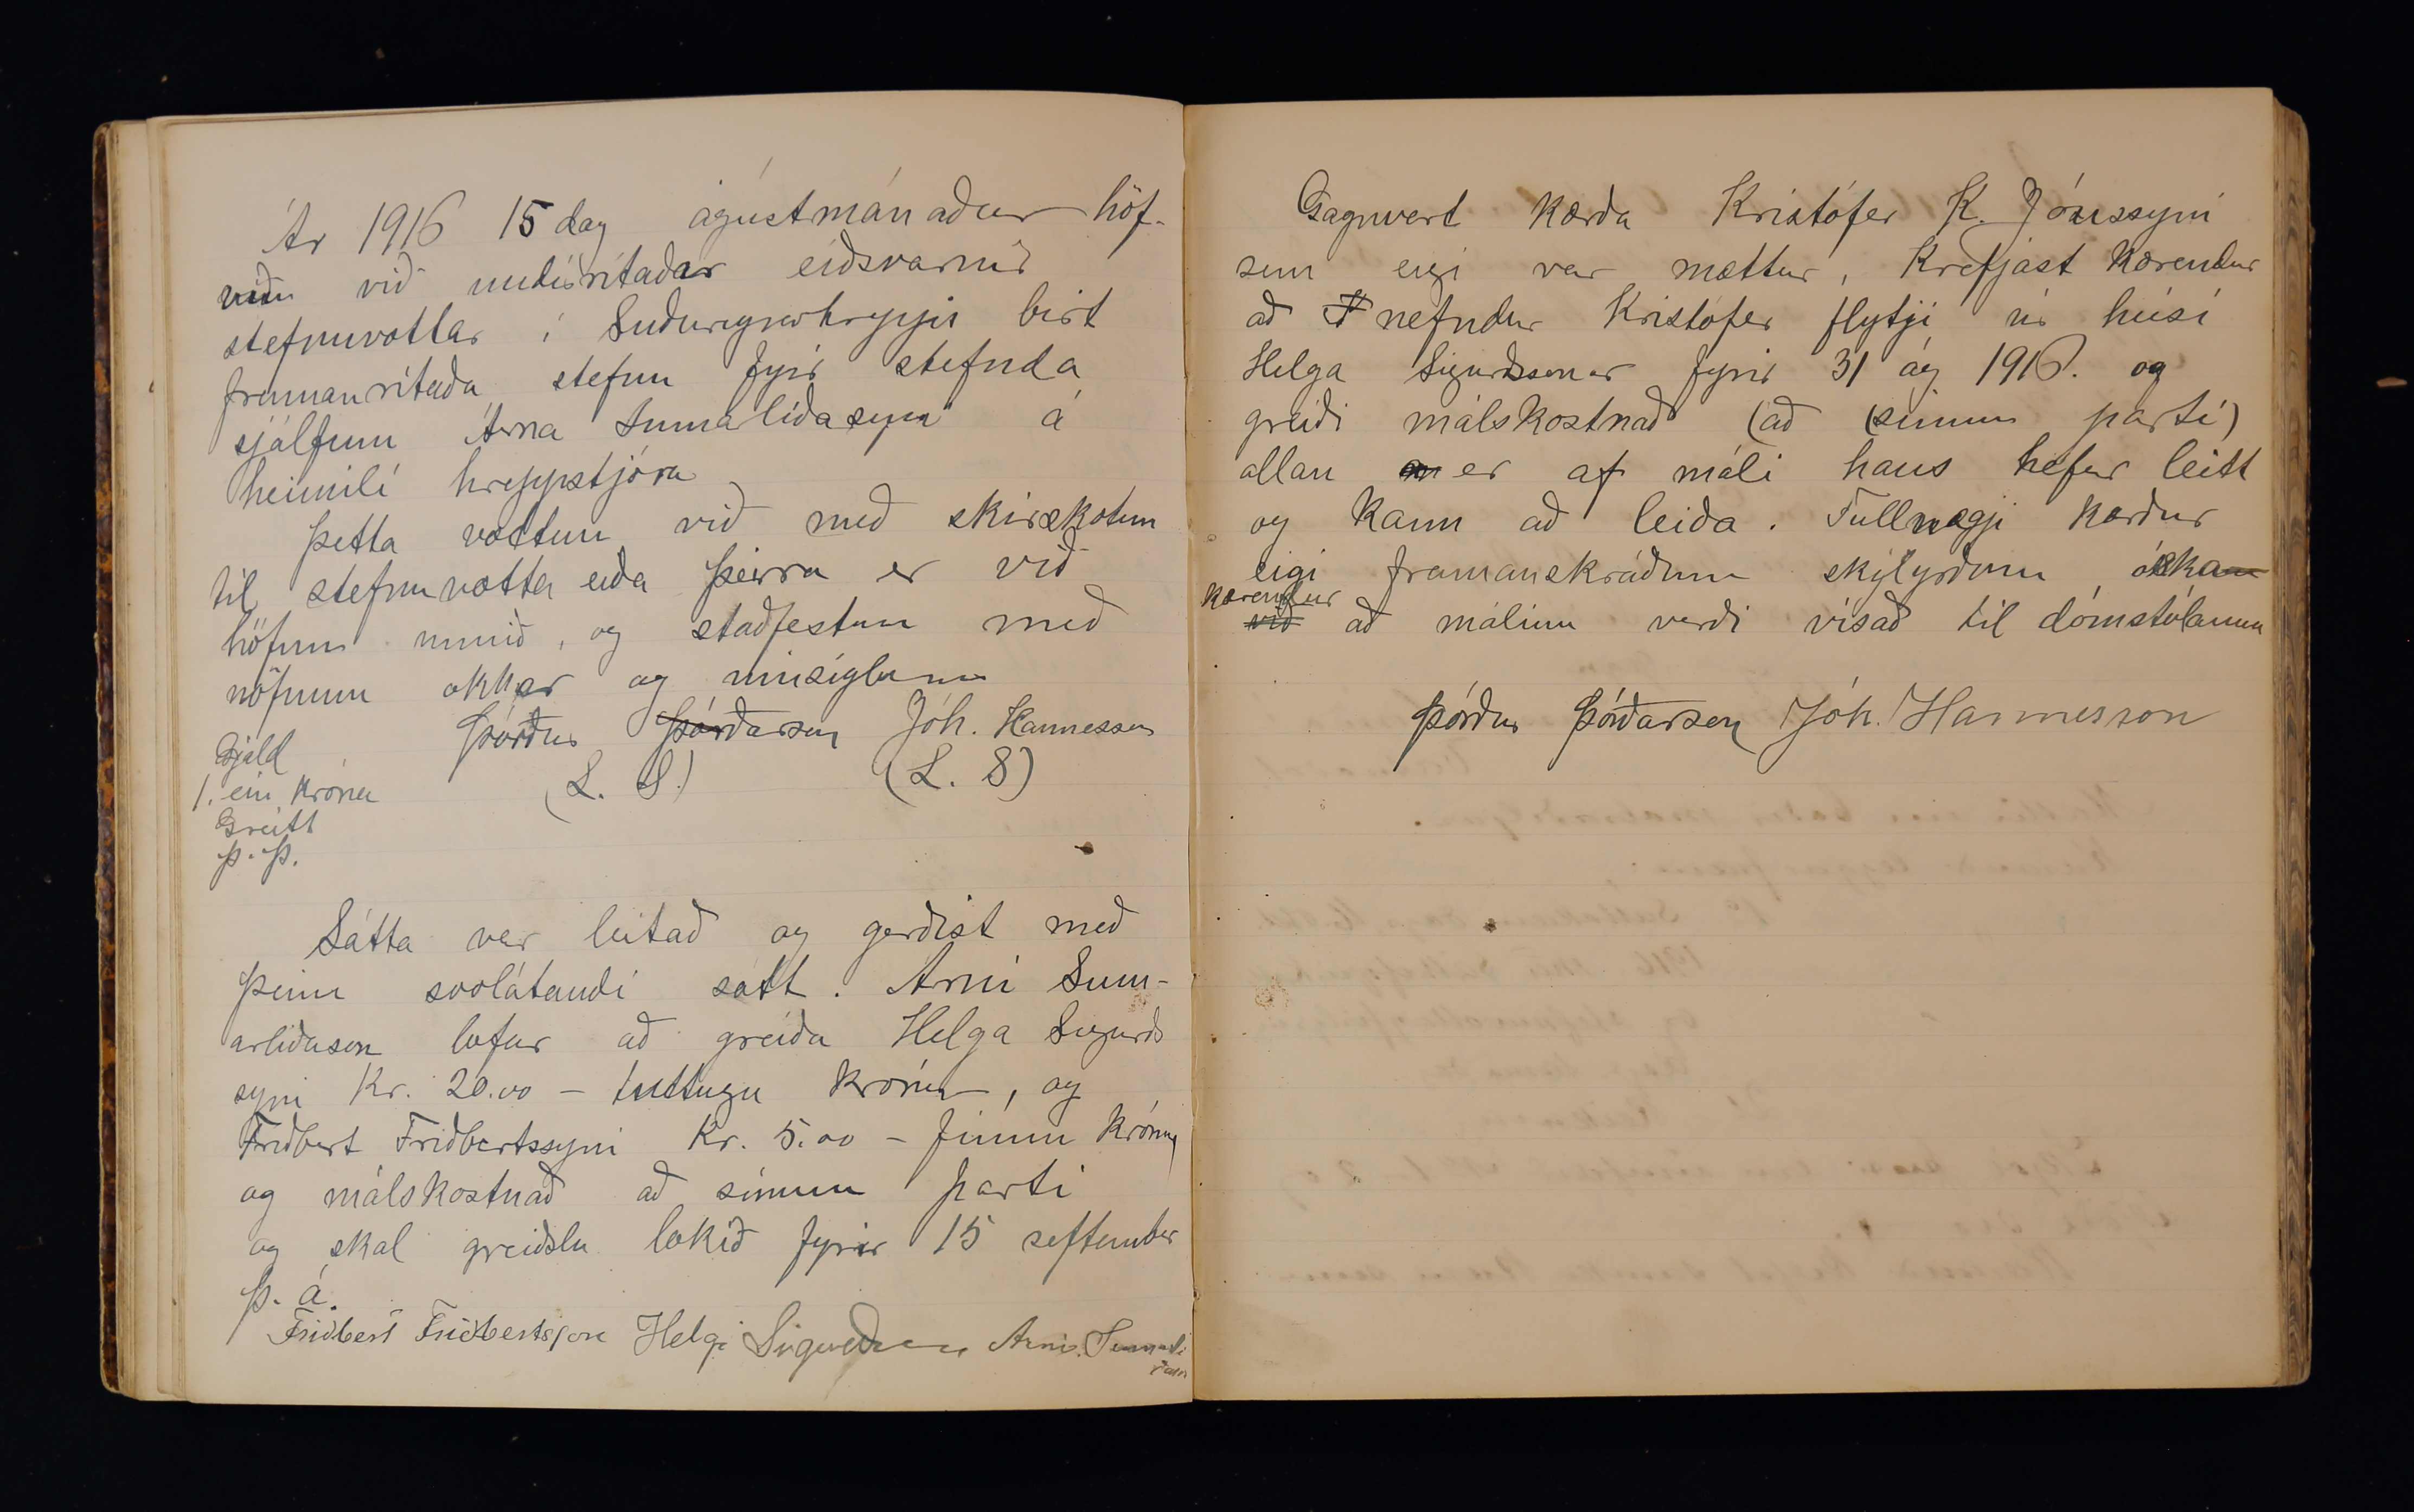 Ár 1916 15 dag ágústmánaðar höf-
um við undirritaðar eiðsvarnir
stefnuvottar í Suðureyrarhreppi birt
framanritaða stefnu fyrir stefnda
sjálfum Árna Sumarliðasyni á
heimili hreppstjóra
Þetta vottum við með skírskotun
til stefnuvotta eiða þeirra er við
höfum unnið, og staðfestum með
nöfnum okkar og innsiglum
Þórður Þórðarson Jóh. Hannesson
(L. S.) (L. S)
Gjald
1. ein króna
Greitt
Þ. Þ.
Sátta var leitað og gerðist með
þeim svolátandi sátt. Árni Sum-
arliðason lofar að greiða Helga Sigurðs
syni Kr. 20.00 - tuttugu krónur, og
Friðbert Friðbertssyni Kr. 5.00 - fimm krónur
og málskostnað að sínum parti
og skal greiðslu lokið fyrir 15 september
þ. á.
Friðbert Friðbertsson Helgi Sigurðsson Árni Sumarli
ðason
Gagnvert kærða Kristófer K. Jónssyni
sem eigi var mættur, krefjast kærendur
að nefndur Kristófer flytji úr húsi
Helga Sigurðssonar fyrir 31 ág 1916. og
greiði málskostnað (að (sínum parti)
allan er af máli hans hefur leitt
og kann að leiða. Fullnægi kærður
eigi framanskráðum skylyrðum óska
kærendur
við að málinu verði vísað til dómstólanna
Þórður Þórðarson Jóh. Hannesson